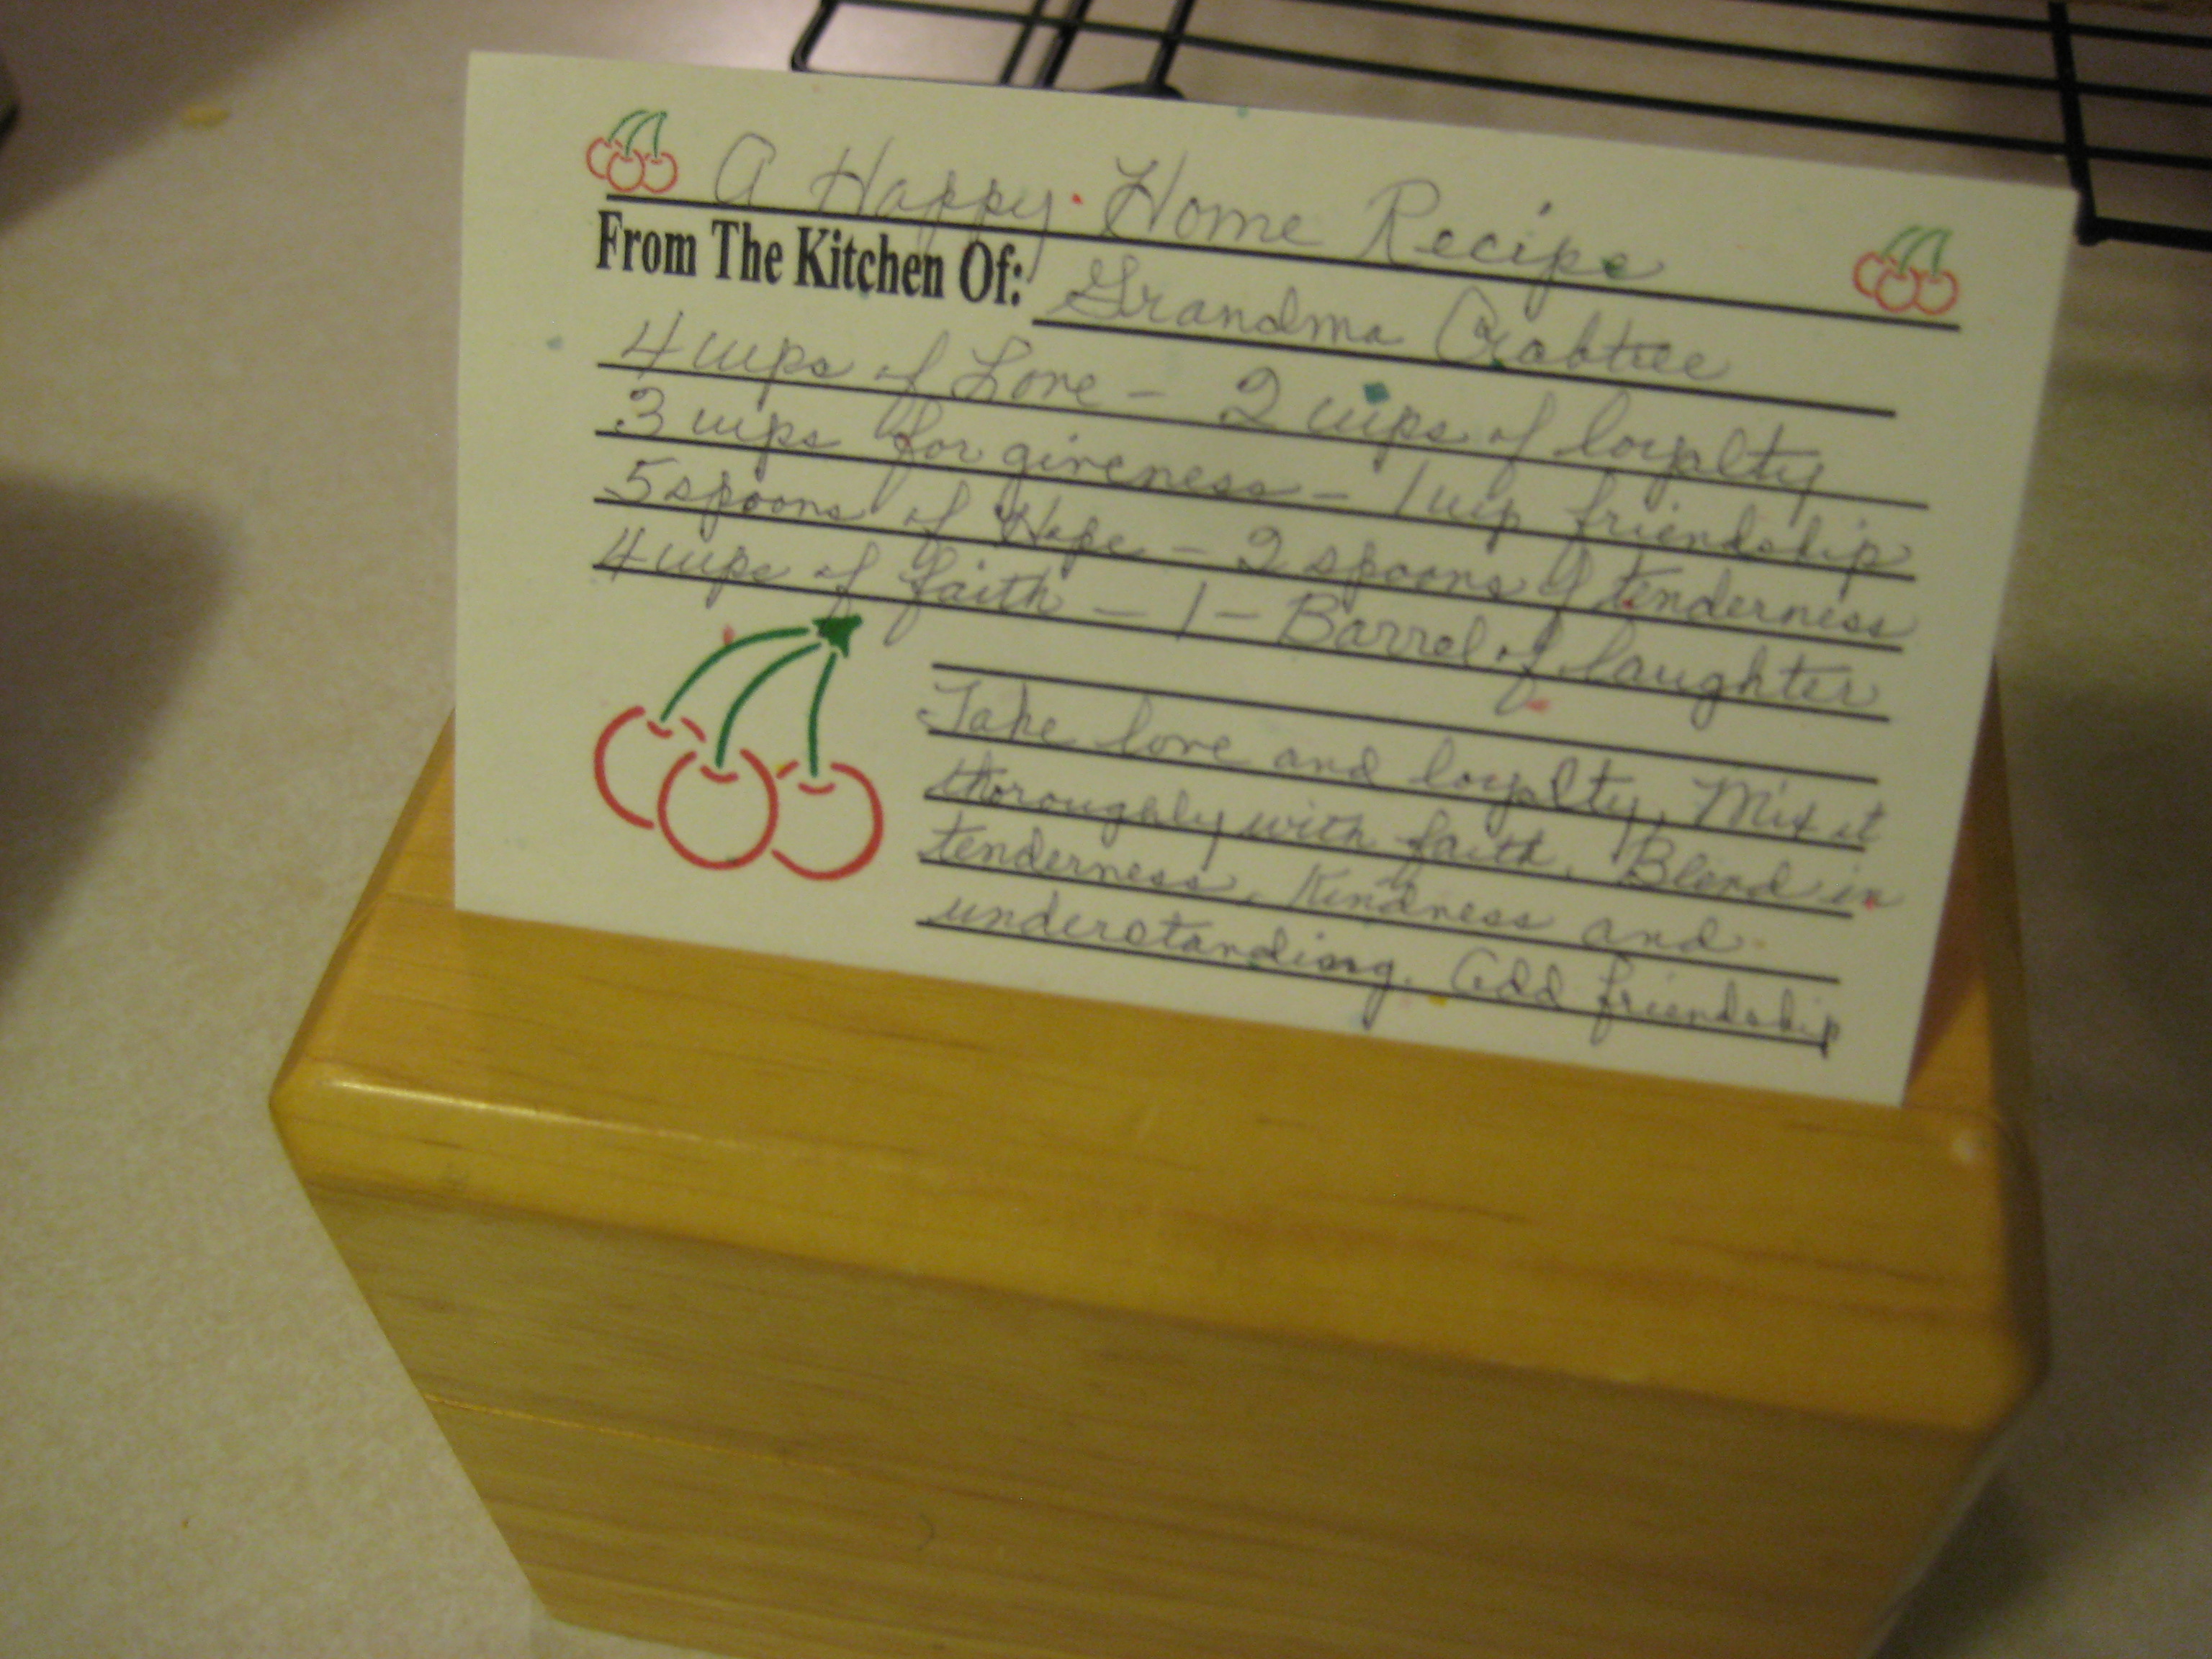 A Happy Home Recipe
From The Kitchen Of: Grandma Crabtree
4 cups of Love - 2 cups of loyalty
3 cups forgiveness - 1 cup friendship
5 spoons of Hope - 2 spoons of tenderness
4 cups of faith - 1 - Barrel of laughter
Take love and loyalty, Mix it
thoroughly with faith. Blend in
tenderness, Kindness and
understanding. Add friendship